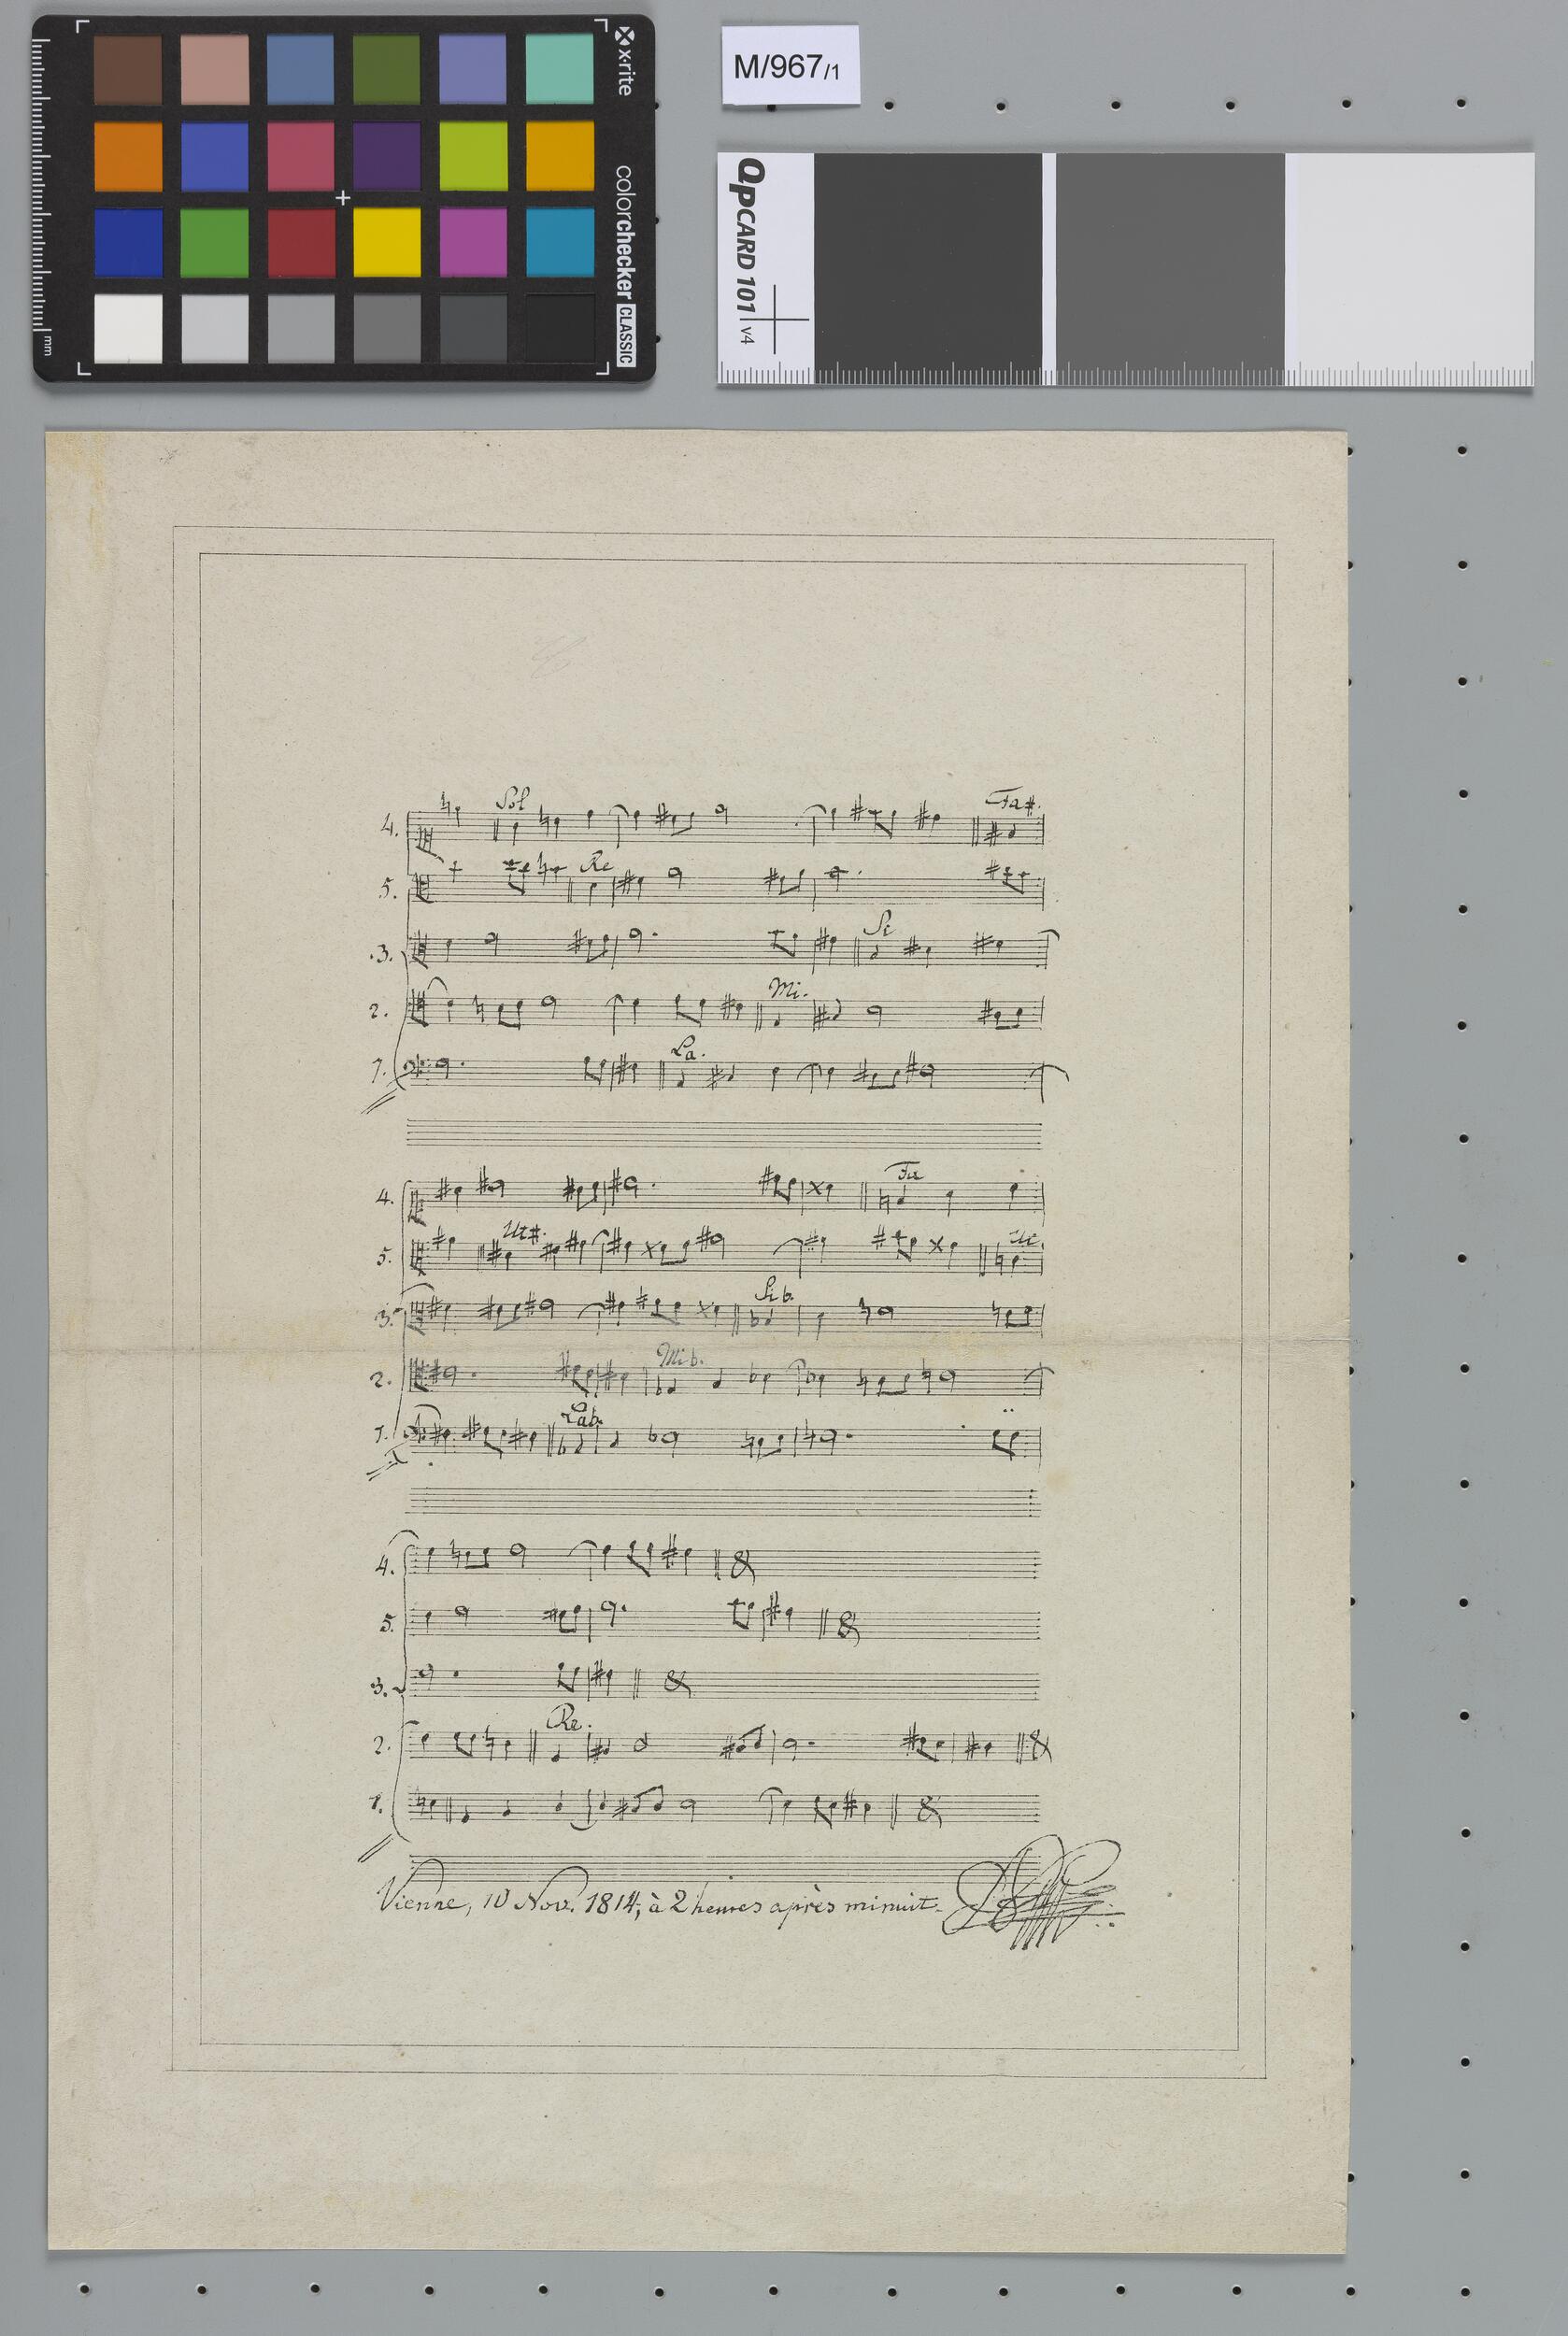 x-rite
colorchecker CLASSIC
mm
M/967/1
QPCARD 101 v4
Sol
Fa#.
4.
Re
5.
Si
3.
Mi.
2.
La.
1.
Fa
4.
Ut#.
Ut.
5.
Sib.
3.
Mib.
2.
Lab.
1.
4.
5.
3.
Re.
2.
1.
Vienne, 10 Nov. 1814, à 2 heures après minuit.